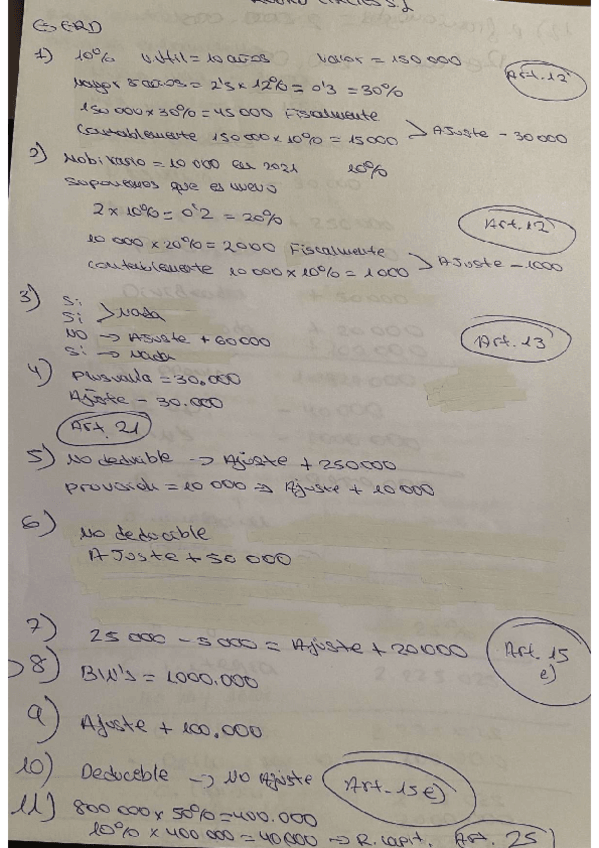 ES ERD
1) 10% V.útil = 10 años Valor = 150 000
Mayor 5 años = 2'5 x 12% = 0'3 = 30%
Art. 12
150 000 x 30% = 45 000 Fiscalmente
Contablemente 150 000 x 10% = 15000 > Ajuste - 30 000
2) Mobiliario = 10 000 en 2021 10%
Suponemos que es nuevo
2 x 10% = 0'2 = 20%
Art. 12
10 000 x 20% = 2000 Fiscalmente
Contablemente 10 000 x 10% = 1000 > Ajuste - 1000
3) Si
Si > Nada
NO → Ajuste + 60000
Si → Nada
Art. 13
4) Plusvalía = 30.000
Ajuste - 30.000
Art. 21
5) No deducible → Ajuste + 250000
Provisión = 10 000 → Ajuste + 10000
6) No deducible
Ajuste + 50 000
7) 25 000 - 5 000 = Ajuste + 20000
Art. 15 e)
8) BIN's = 1000.000
9) Ajuste + 100.000
10) Deducible → No Ajuste
Art. 15 e)
11) 800 000 x 50% = 400.000
10% x 400 000 = 40000 → R. Capit. Art. 25